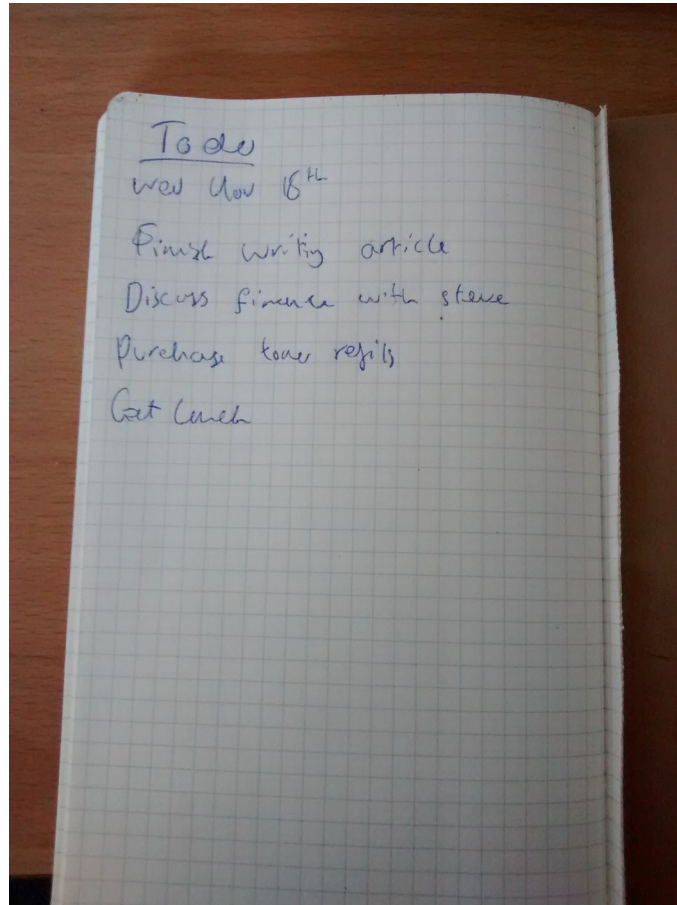 Todo
Wed Nov 18th
Finish writing article
Discuss finance with steve
Purchase toner refils
Get lunch